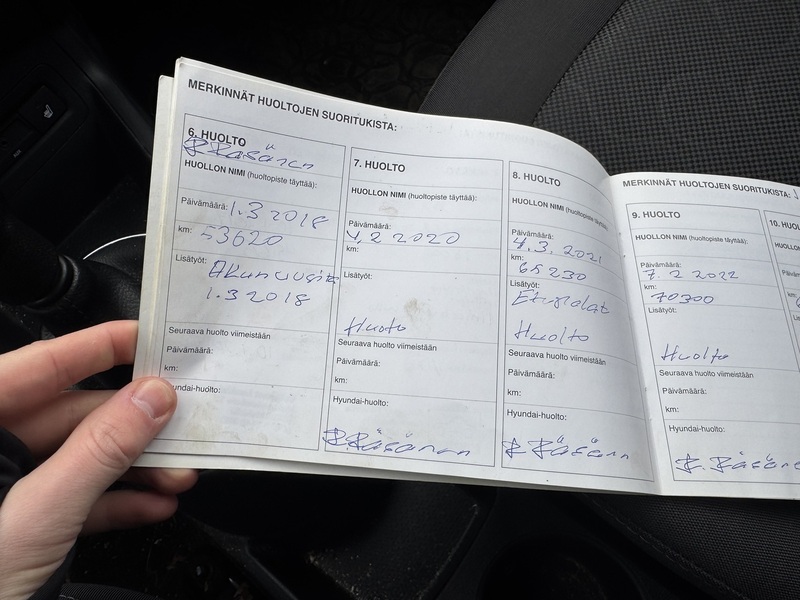 MERKINNÄT HUOLTOJEN SUORITUKSISTA:
6. HUOLTO
R Räsänen
HUOLLON NIMI (huoltopiste täyttää):
Päivämäärä: 1.3 2018
km: 53620
Lisätyöt: Akun uusita
1.3 2018
Seuraava huolto viimeistään
Päivämäärä:
km:
Hyundai-huolto:
7. HUOLTO
HUOLLON NIMI (huoltopiste täyttää):
Päivämäärä:
4.2 2020
km:
Lisätyöt:
Huolto
Seuraava huolto viimeistään
Päivämäärä:
km:
Hyundai-huolto:
R.Räsänen
8. HUOLTO
HUOLLON NIMI (huoltopiste täyttää
Päivämäärä:
4.3. 2021
km:
65230
Lisätyöt:
Etupalat
Huolto
Seuraava huolto viimeistään
Päivämäärä:
km:
Hyundai-huolto:
R Räsänen
MERKINNÄT HUOLTOJEN SUORITUKSISTA:
9. HUOLTO
HUOLLON NIMI (huoltopiste täyttää):
Päivämäärä:
7. 2 2022
km:
70300
Lisätyöt:
Huolto
Seuraava huolto viimeistään
Päivämäärä:
km:
Hyundai-huolto:
R. Räsäne
10. HUOL
HUOLLON
Päiväm
km:
Lis